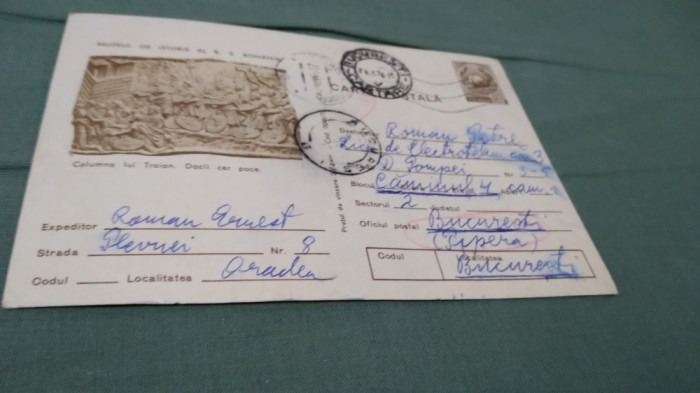 MUZEUL DE ISTORIE AL R. S. ROMÂNIA
Columna lui Traian. Dacii cer pace.
Expeditor Roman Ernest
Strada Plevnei Nr. 8
Codul Localitatea Oradea
BUCUREȘTI
CARTE POȘTALĂ
Roman Petre
de Electrotehn
D Pompei Nr. 3-5
Blocul Căminul 4 cam.
Sectorul 2 Județul
Oficiul poștal București
(Pipera)
Codul Localitatea
București